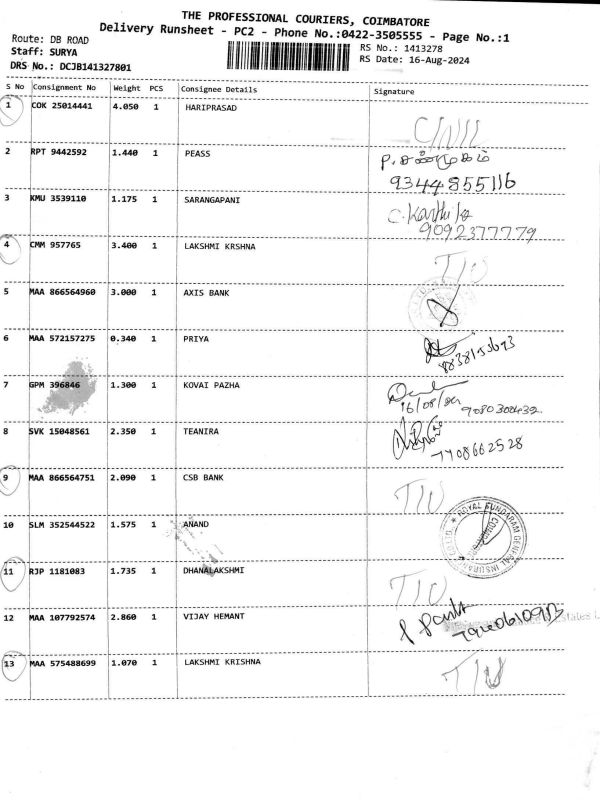 THE PROFESSIONAL COURIERS, COIMBATORE
Delivery Runsheet - PC2 - Phone No.:0422-3505555 - Page No.:1
Route: DB ROAD
RS No.: 1413278
Staff: SURYA
RS Date: 16-Aug-2024
DRS No.: DCJB141327801
S No Consignment No Weight PCS Consignee Details Signature
1 COK 25014441 4.050 1 HARIPRASAD
2 RPT 9442592 1.440 1 PEASS
P. சண்முகம்
9344855116
3 KMU 3539110 1.175 1 SARANGAPANI
C. Karthika
9092377779
4 CMM 957765 3.400 1 LAKSHMI KRSHNA
5 MAA 866564960 3.000 1 AXIS BANK
6 MAA 572157275 0.340 1 PRIYA
7 GPM 396846 1.300 1 KOVAI PAZHA
9080302432
8 SVK 15048561 2.350 1 TEANIRA
7708662528
9 MAA 866564751 2.090 1 CSB BANK
10 SLM 352544522 1.575 1 ANAND
ROYAL SUNDARAM GENERAL INSURANCE
11 RJP 1181083 1.735 1 DHANALAKSHMI
12 MAA 107792574 2.860 1 VIJAY HEMANT
13 MAA 575488699 1.070 1 LAKSHMI KRISHNA